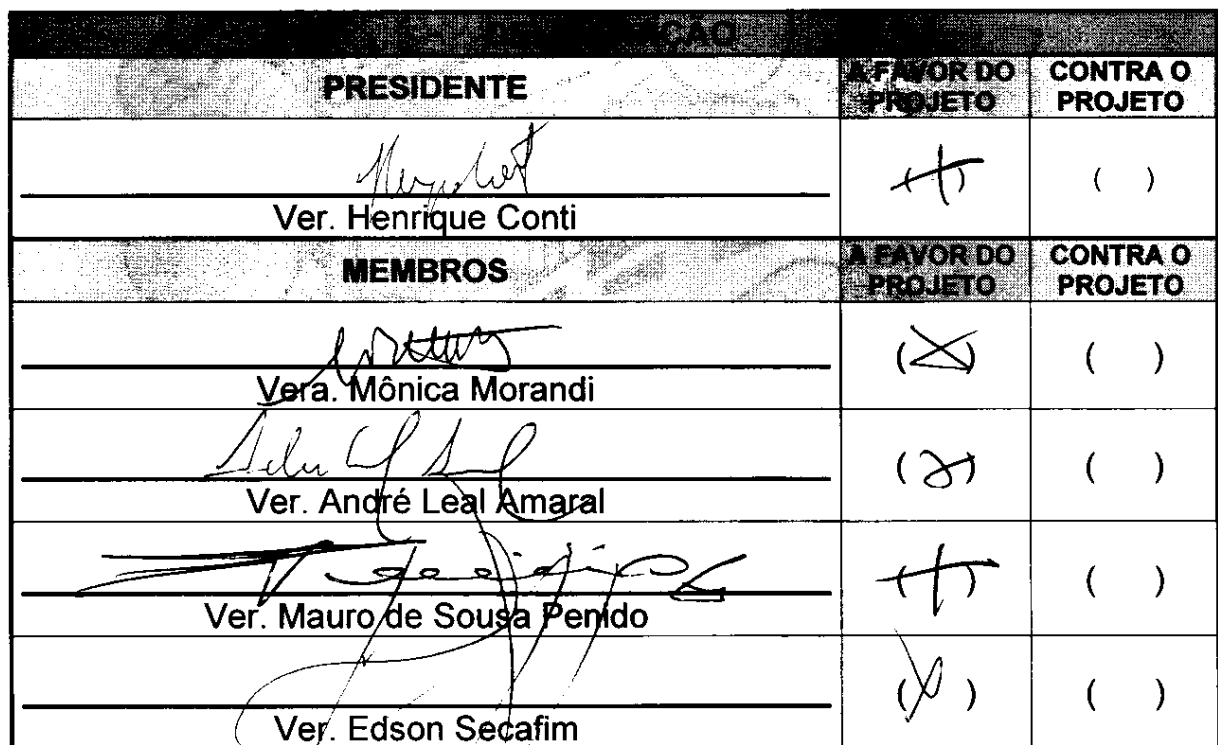 PRESIDENTE
A FAVOR DO PROJETO
CONTRA O PROJETO
( )
Ver. Henrique Conti
MEMBROS
A FAVOR DO PROJETO
CONTRA O PROJETO
(X) ( )
Vera. Mônica Morandi
( ) ( )
Ver. André Leal Amaral
( ) ( )
Ver. Mauro de Sousa Penido
(X) ( )
Ver. Edson Secafim